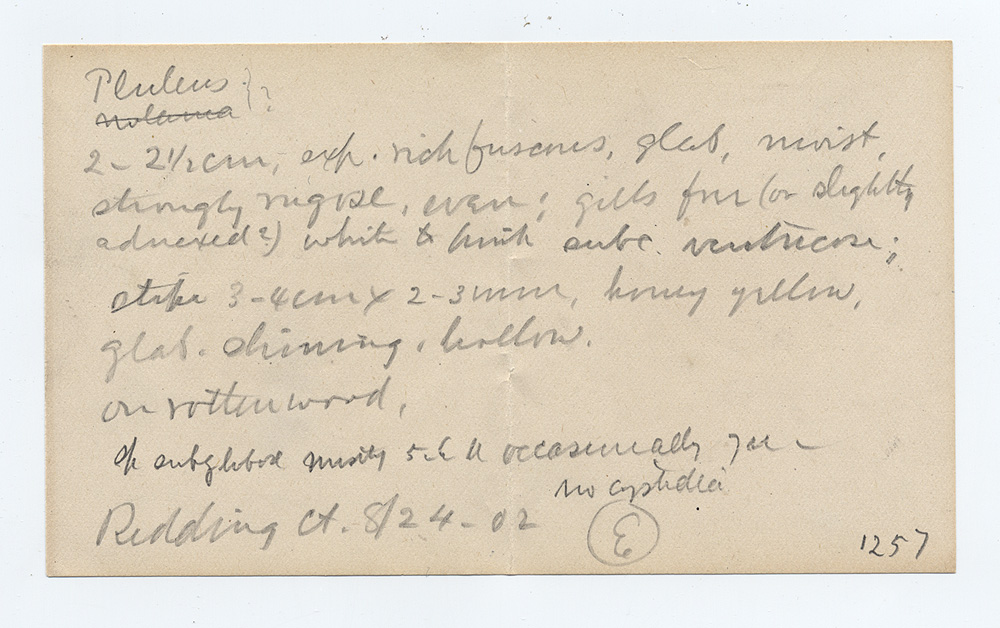 Pluteus }?
nolanea
2 - 2½ cm, exp. rich fuscous, glab, moist,
strongly rugose, even; gills free (or slightly
adnexed?) white to pink subc. ventricose;
stipe 3-4 cm x 2-3 mm, honey yellow,
glab. shining, hollow.
on rotten wood,
sp subglobose mostly 5-6 u occasionally 7 u -
no cystidia
Redding Ct. 8/24-02
E
1257